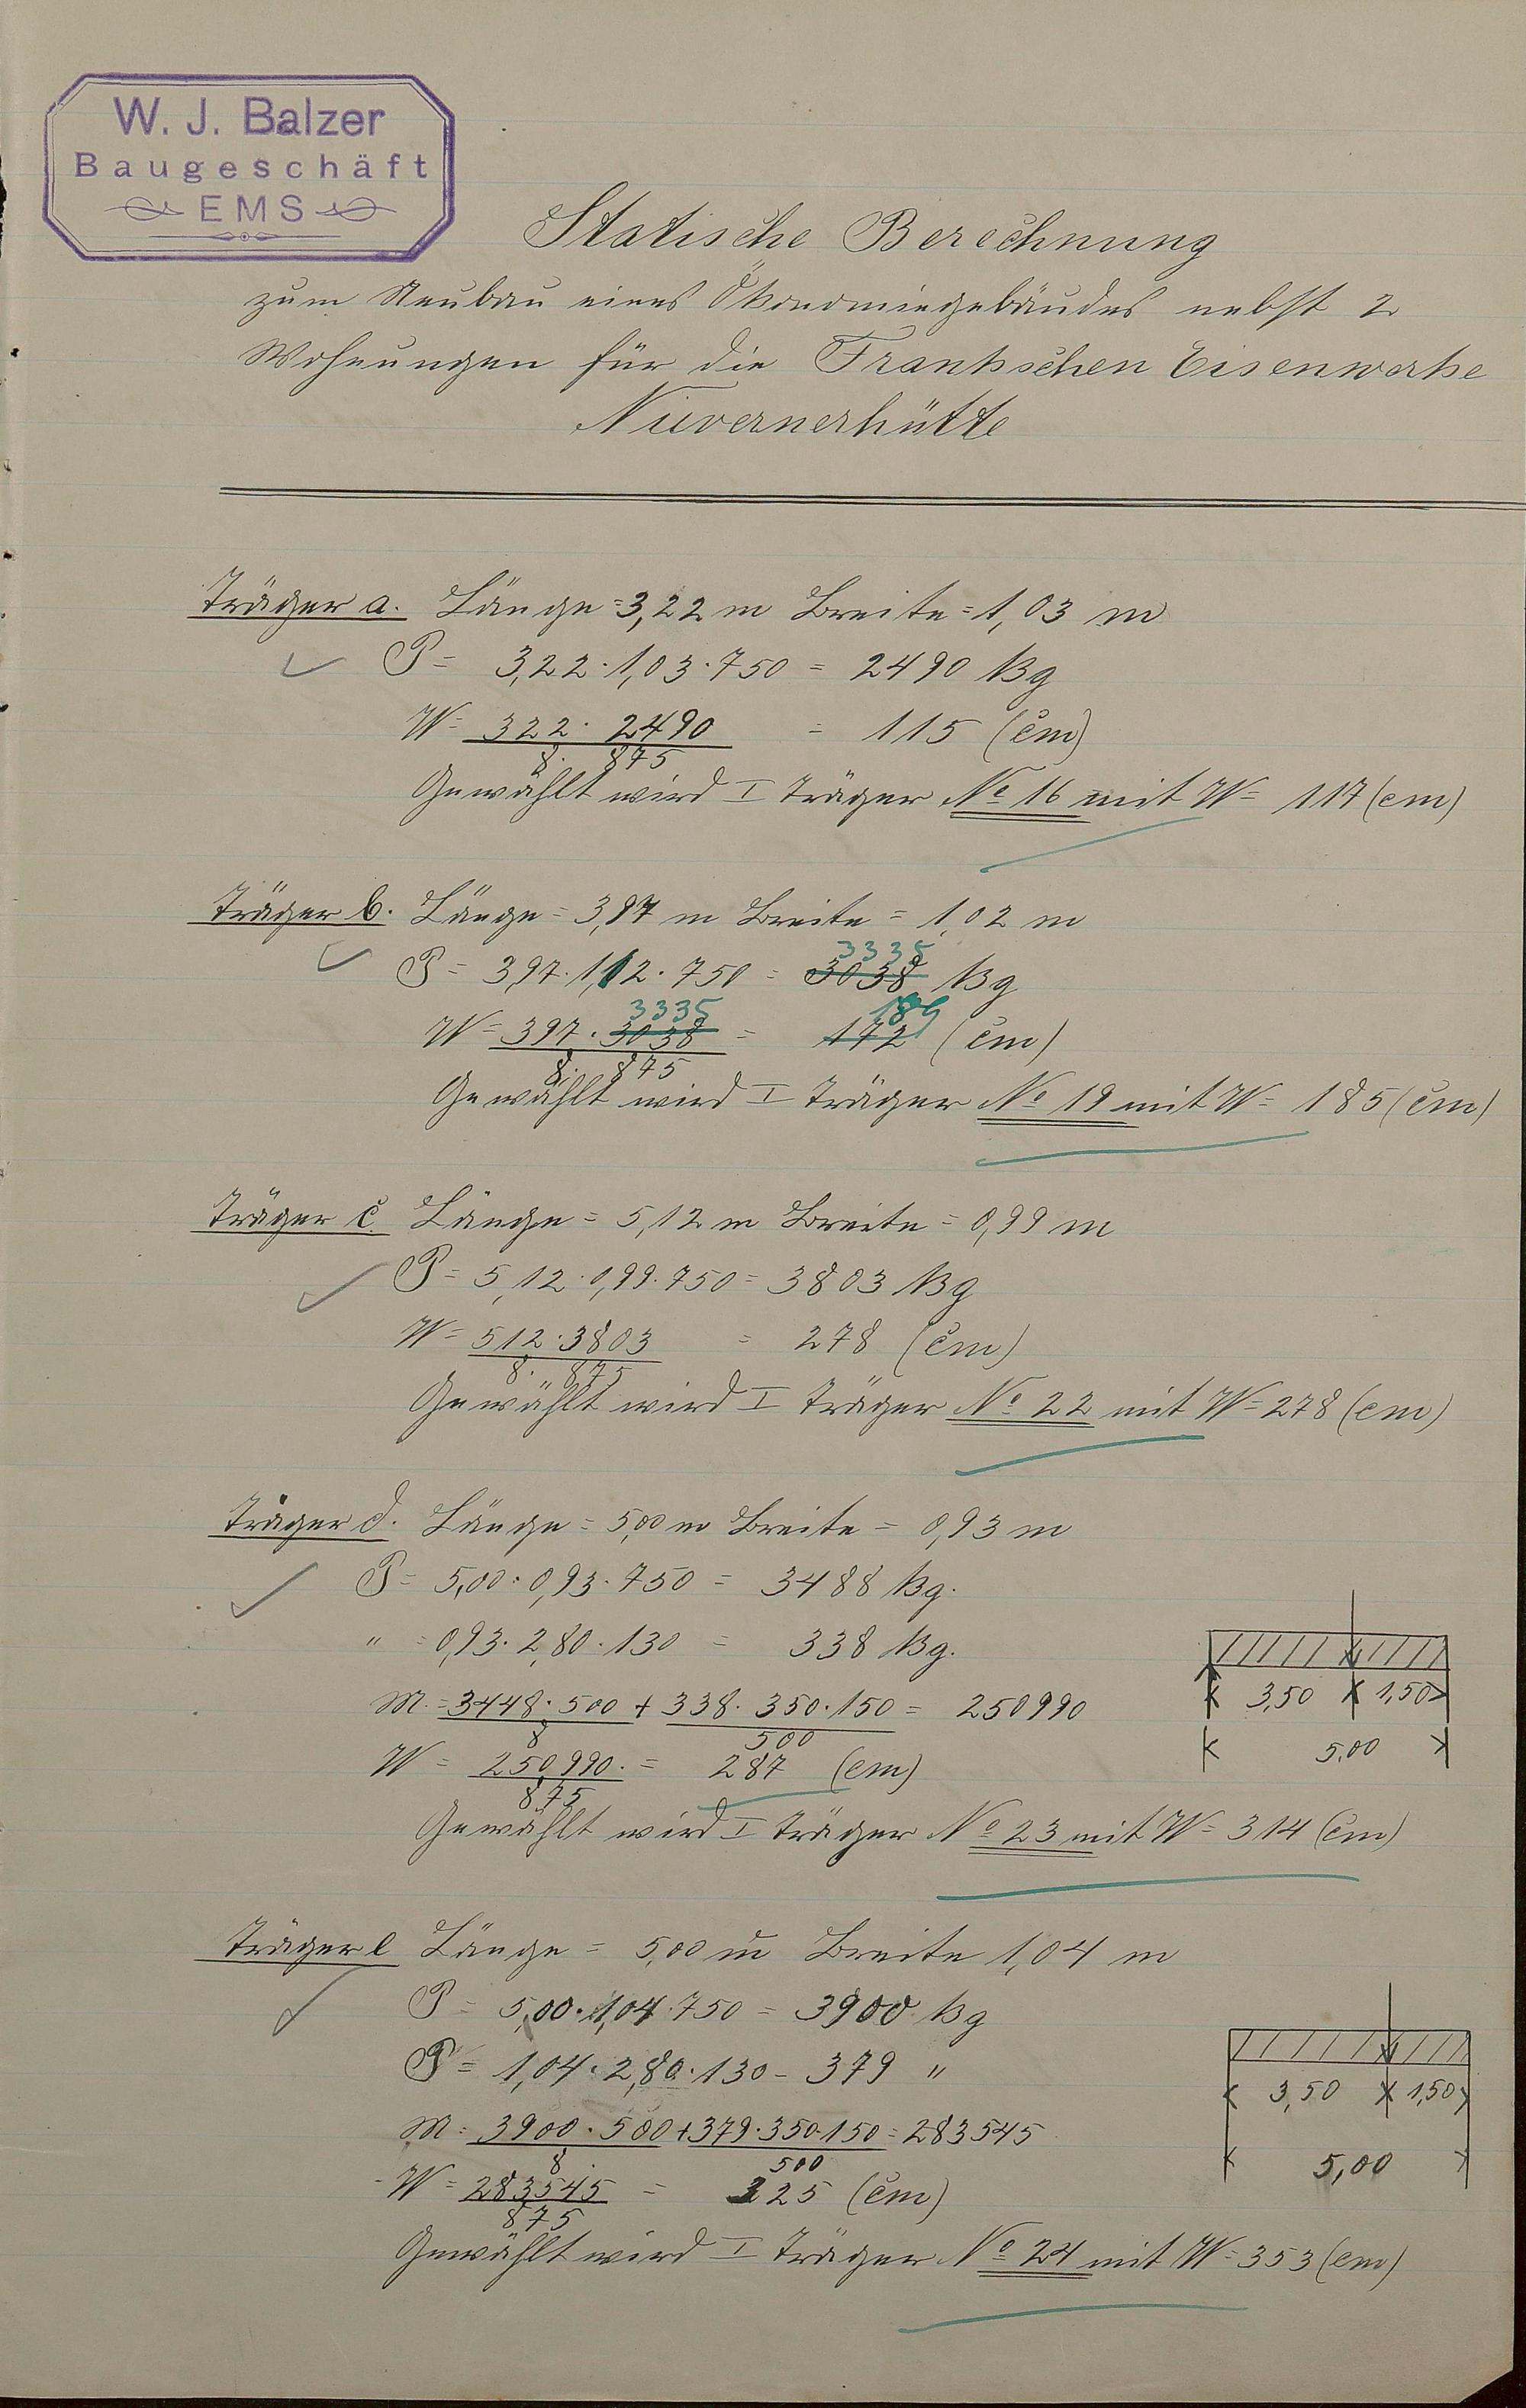 W. J. Balzer
Baugeschäft
EMS
Statische Berechnung
zum Neubau eines Ökonomiegebäudes nebst 2
Wohnungen für die Frankschen Eisenwerke
Nievernerhütte
Träger a. Länge = 3,22 m Breite = 1,03 m
P = 3,22 · 1,03 · 750 = 2490 Kg
W = 322 · 2490 = 115 (cm)
8 · 875
Gewählt wird I Träger No 16 mit W = 117 (cm)
Träger b. Länge = 3,97 m Breite = 1,02 m
3335
P = 3,97 · 1,12 · 750 = 3038 Kg
3335 189
W = 397 · 3038 = 172 (cm)
8 · 875
Gewählt wird I Träger No 19 mit W = 185 (cm)
Träger c. Länge = 5,12 m Breite = 0,99 m
P = 5,12 · 0,99 · 750 = 3803 Kg
W = 512 · 3803 = 278 (cm)
8 · 875
Gewählt wird I Träger No 22 mit W = 278 (cm)
Träger d. Länge = 5,00 m Breite = 0,93 m
P = 5,00 · 0,93 · 750 = 3488 Kg.
" = 0,93 · 2,80 · 130 = 338 Kg.
M = 3448 · 500 + 338 · 350 · 150 = 250990
8 500
W = 250990 = 287 (cm)
875
3,50 1,50
5,00
Gewählt wird I Träger No 23 mit W = 314 (cm)
Träger e Länge = 5,00 m Breite 1,04 m
P = 5,00 · 1,04 · 750 = 3900 Kg
P = 1,04 · 2,80 · 130 - 379 "
M = 3900 · 500 + 379 · 350 · 150 = 283545
8 500
W = 283545 = 325 (cm)
875
3,50 1,50
5,00
Gewählt wird I Träger No 24 mit W = 353 (cm)